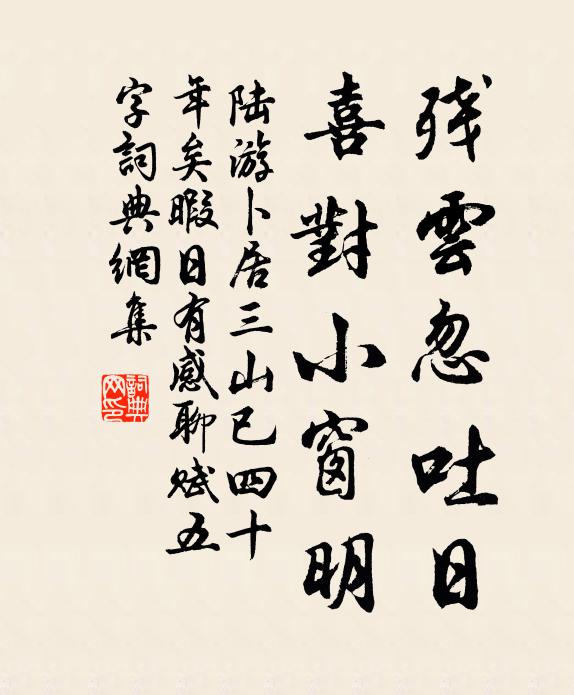 残雲忽吐日
喜對小窗明
陆游卜居三山已四十
年矣暇日有感聊赋五
字詞典網集
詞典网印